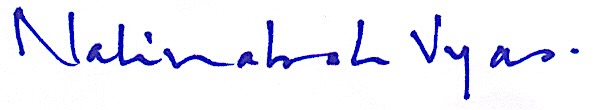 Nalinaksh Vyas.